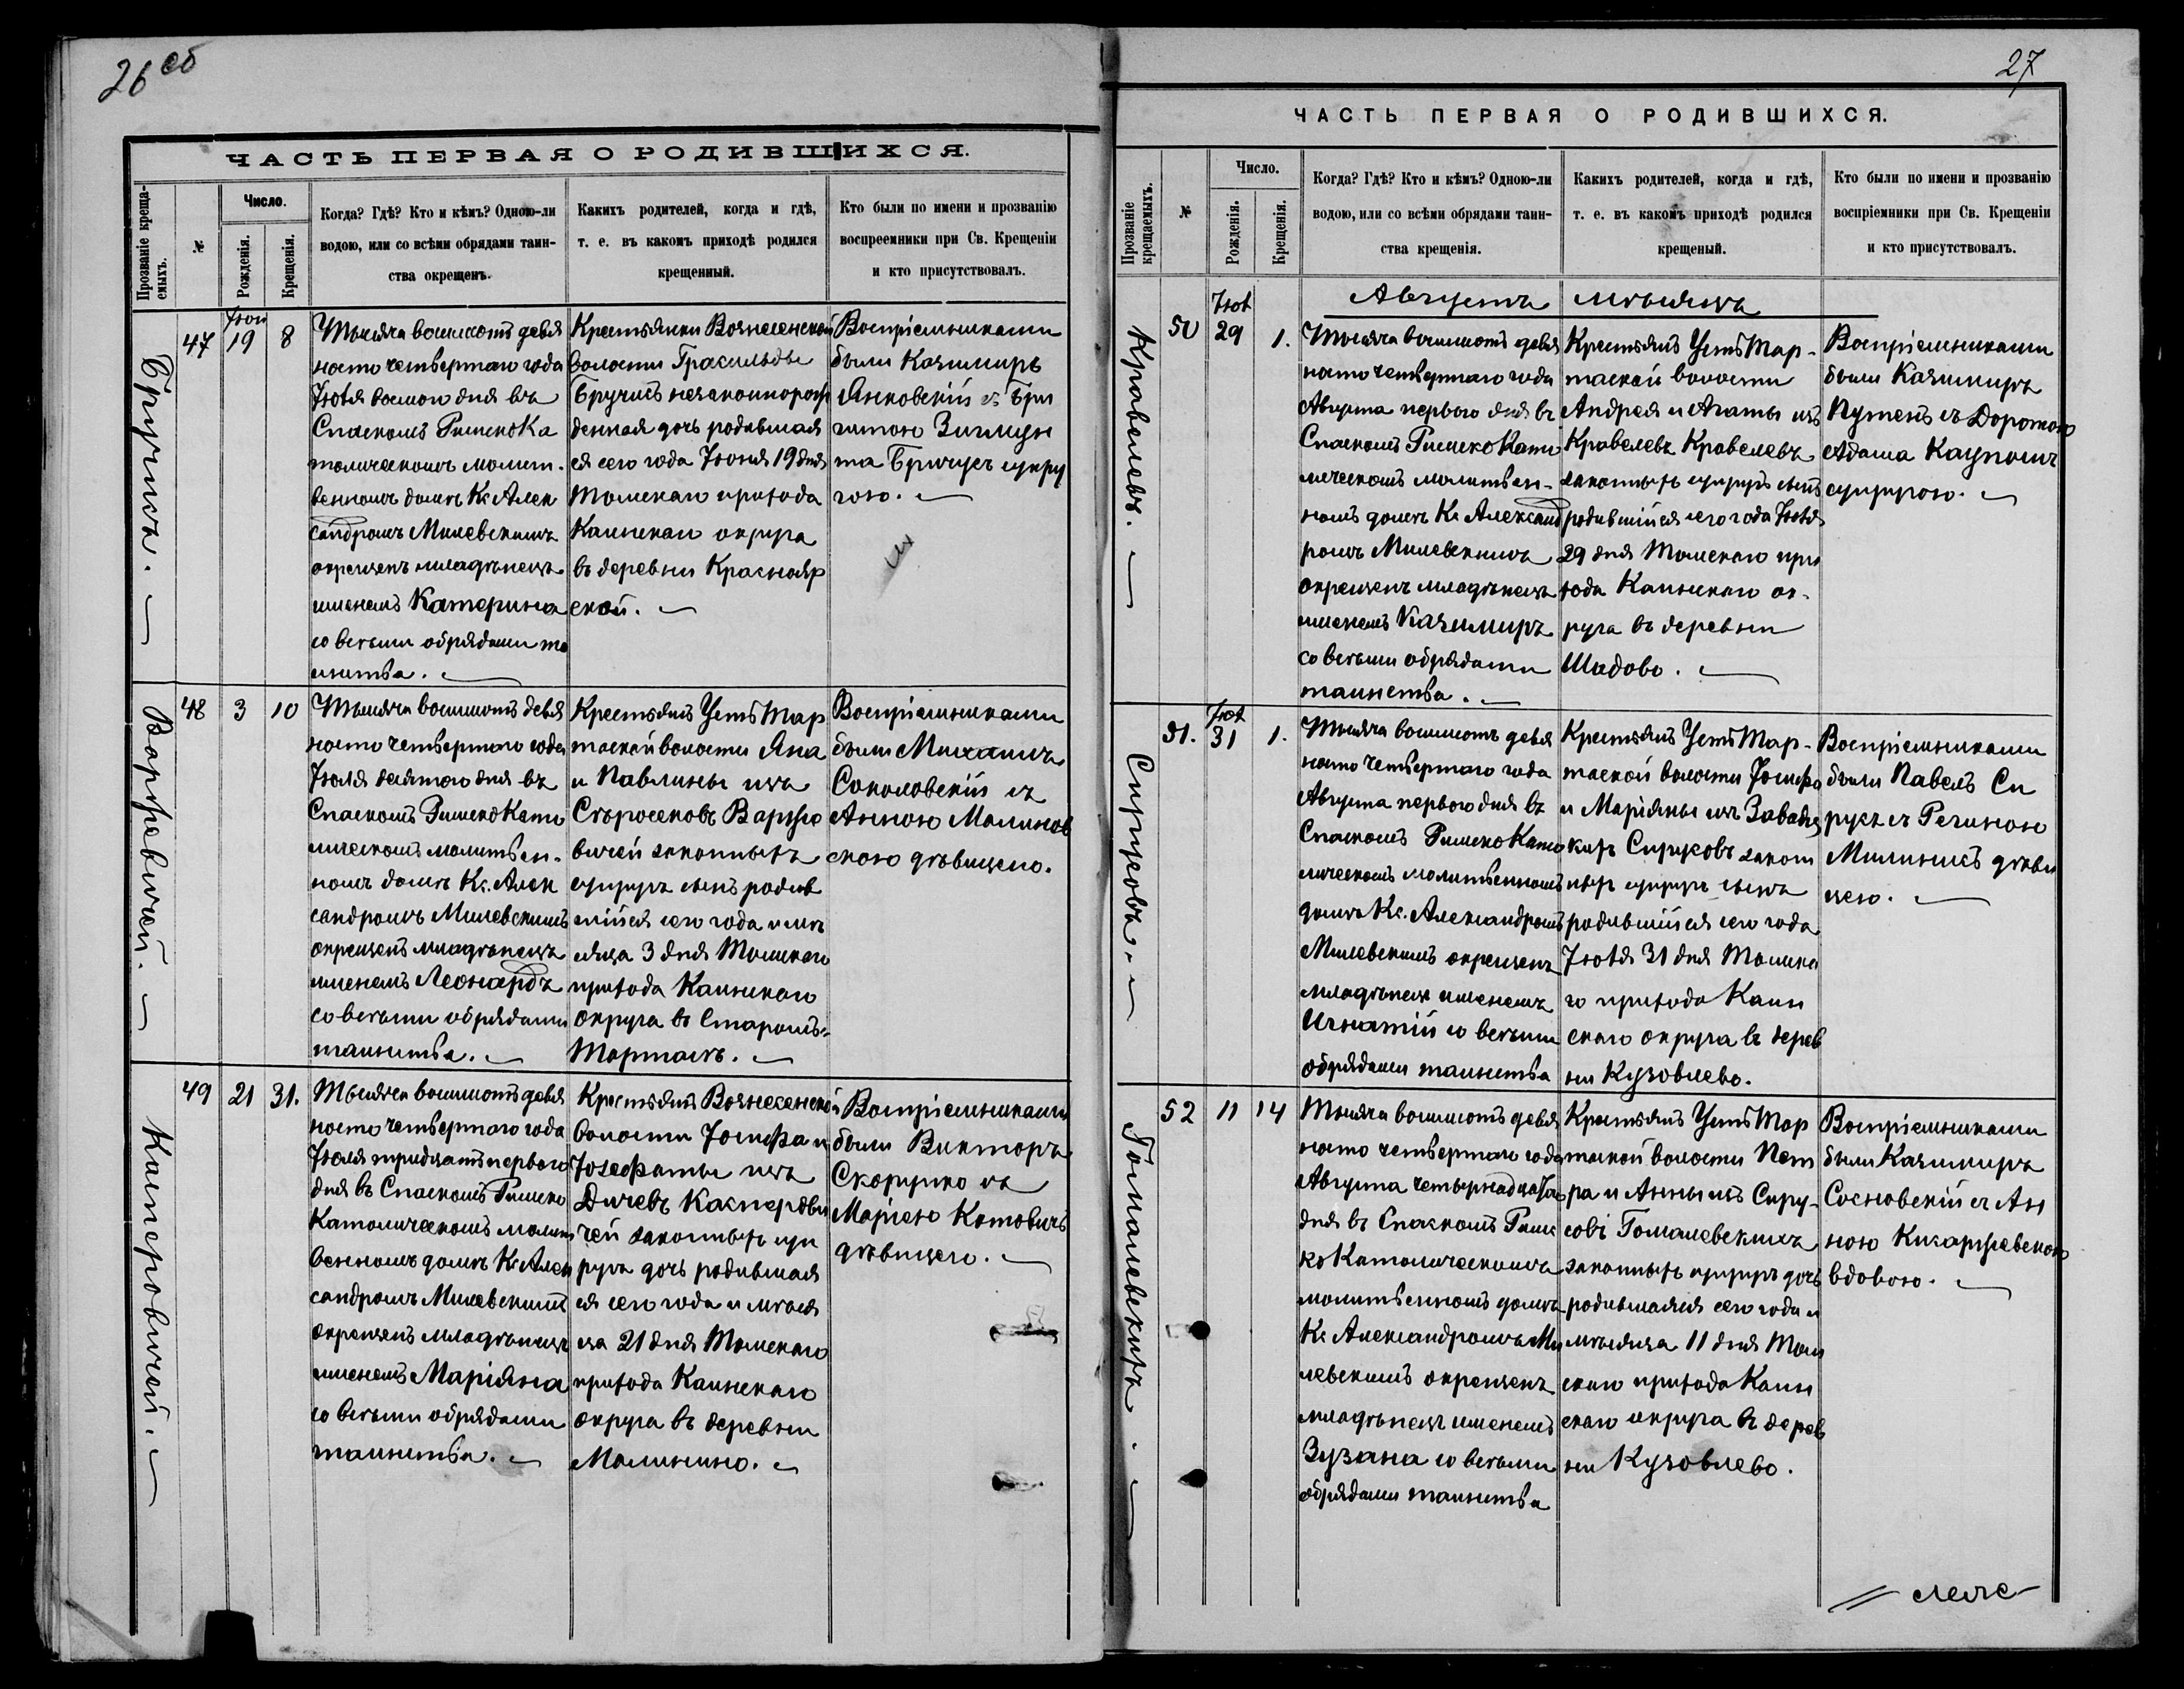 26 об
ЧАСТЬ ПЕРВАЯ О РОДИВШИХСЯ.
Прозваніе крещаемыхъ.
№
Число.
Рожденія.
Крещенія.
Когда? Гдѣ? Кто и кѣмъ? Одною-ли
водою, или со всѣми обрядами таин-
ства окрещенъ.
Какихъ родителей, когда и гдѣ,
т. е. въ какомъ приходѣ родился
крещенный.
Кто были по имени и прозванію
воспреемники при Св. Крещеніи
и кто присутствовалъ.
47
Іюн
19
8
Тысяча восьмсотъ девя
носто четвертаго года
Іюля восмого дня въ
Спаскомъ РимскоКа
толическомъ молит-
венномъ домѣ Кс Алек
сандромъ Милевскимъ
окрещенъ младѣнецъ
именемъ Катерина
со всѣми обрядами та
инства.
Крестьянки Вознесенской
волости
незаконнорож
денная дочь родившая
ся сего года Іюня 19 дня
Томскаго прихода
Каинскаго округа
въ деревни Краснояр
ской.
Воспріемниками
были Казимиръ
Янковскій съ Бри
гитою Зигмун
та супру
гою.
48
3
10
Варфевичей.
Тысяча восьмсотъ девя
носто четвертаго года
Іюля десятого дня въ
Спаскомъ РимскоКато
лическомъ молитвен-
номъ домѣ Кс. Алек
сандромъ Милевскимъ
окрещенъ младѣнецъ
именемъ Леонардъ
со всѣми обрядами
таинства.
Крестьянъ УстьТар
таской волости Яна
и Павлины изъ
вичей законныхъ
супруг сынъ родив
шійся сего года и мѣ
сяца 3 дня Томскаго
прихода Каинскаго
округа въ Старомъ-
Тартасѣ.
Воспріемниками
были Михаилъ
Соколовскій съ
Анною Малинов
скою дѣвицею.
49
21
31.
Касперовичей.
Тысяча восьмсотъ девя
носто четвертаго года
Іюля тридцать первого
дня въ Спаскомъ Римско
Католическомъ молит
венномъ домѣ Кс Алек
сандромъ Милевскимъ
окрещенъ младѣнецъ
именемъ Маріяна
со всѣми обрядами
таинства.
Крестьянъ Вознесенской
волости Іосифа и
Іозефаты изъ
Дичевъ Касперови
чей законныхъ суп
руг дочь родившая
ся сего года и мѣся
ца 21 дня Томскаго
прихода Каинскаго
округа въ деревни
Малинино.
Воспріемниками
были Викторъ
Скорупко съ
Маріею Котовичъ
дѣвицею.
27
ЧАСТЬ ПЕРВАЯ О РОДИВШИХСЯ.
Прозваніе
крещаемыхъ.
№
Число.
Рожденія.
Крещенія.
Когда? Гдѣ? Кто и кѣмъ? Одною-ли
водою, или со всѣми обрядами таин-
ства крещенія.
Какихъ родителей, когда и гдѣ,
т. е. въ какомъ приходѣ родился
крещеный.
Кто были по имени и прозванію
воспріемники при Св. Крещеніи
и кто присутствовалъ.
Августъ мѣсяцъ
50
Іюл
29
1.
Кравелевъ.
Тысяча восьмсотъ девя
носто четвертаго года
Августа первого дня въ
Спаскомъ РимскоКато
лическомъ молитвен-
номъ домѣ Кс Александ
ромъ Милевскимъ
окрещенъ младѣнецъ
именемъ Казимиръ
со всѣми обрядами
таинства.
Крестьянъ УстьТар-
таской волости
Андрея и Агаты изъ
Кравелевъ Кравелевъ
законныхъ супруг сынъ
родившійся сего года Іюля
29 дня Томскаго при
хода Каинскаго ок-
руга въ деревни
Шадово.
Воспріемниками
были Казимиръ
съ Доротою
Адама
супругою.
51.
Іюл
31
1.
Сируковъ.
Тысяча восьмсотъ девя
носто четвертаго года
Августа первого дня въ
Спаскомъ РимскоКато
лическомъ молитвенномъ
домѣ Кс. Александромъ
Милевскимъ окрещенъ
младѣнецъ именемъ
Игнатій со всѣми
обрядами таинства
Крестьянъ УстьТар-
таской волости Іосифа
и Маріяны изъ
Сируковъ закон
ныхъ супруг сынъ
родившійся сего года
Іюля 31 дня Томска
го прихода Каин
скаго округа въ дерев
ни Кузовлево.
Воспріемниками
были Павелъ Си
рукъ съ Региною
дѣви
цею.
52
11
14
Гомалевскихъ.
Тысяча восьмсотъ девя
носто четвертаго года
Августа четырнадцатаго
дня въ Спаскомъ Римс
коКатолическомъ
молитвенномъ домѣ
Кс Александромъ Ми
левскимъ окрещенъ
младѣнецъ именемъ
Зузана со всѣми
обрядами таинства
Крестьянъ УстьТар
таской волости Пет
ра и Анны изъ Сиру-
ковъ Гомалевскихъ
законныхъ супругъ дочь
родившаяся сего года и
мѣсяца 11 дня Том
скаго прихода Каин
скаго округа въ дерев
ни Кузовлево.
Воспріемниками
были Казимиръ
Сосновскій съ Ан
ною
вдовою.